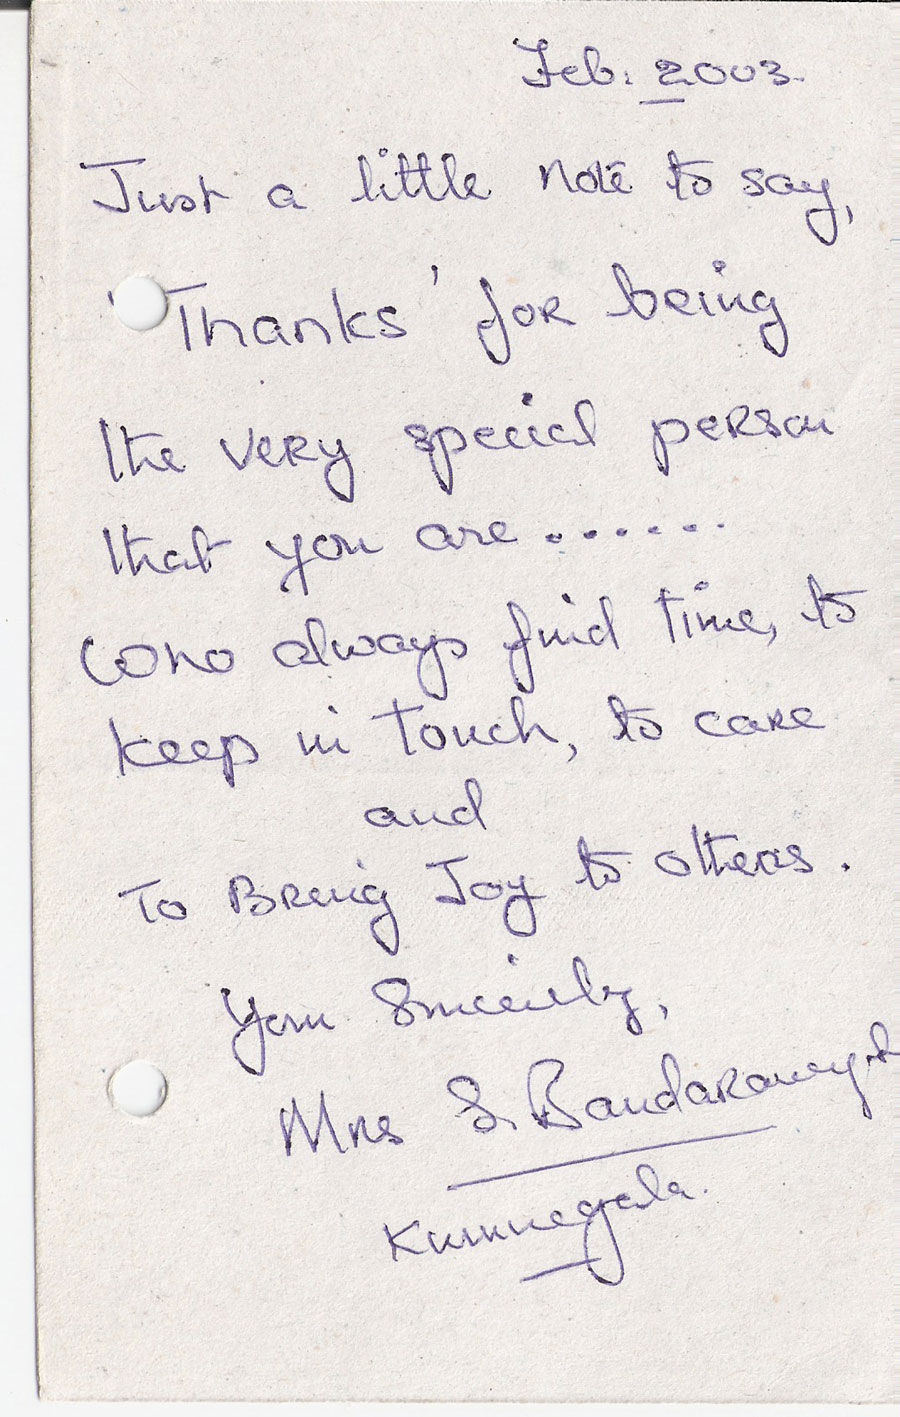 Feb. 2003.
Just a little note to say,
'Thanks' for being
the very special person
that you are .......
who always find time, to
keep in touch, to care
and
To Bring Joy to others.
Your Sincerely,
Mrs S. Bandara
Kurunegala.